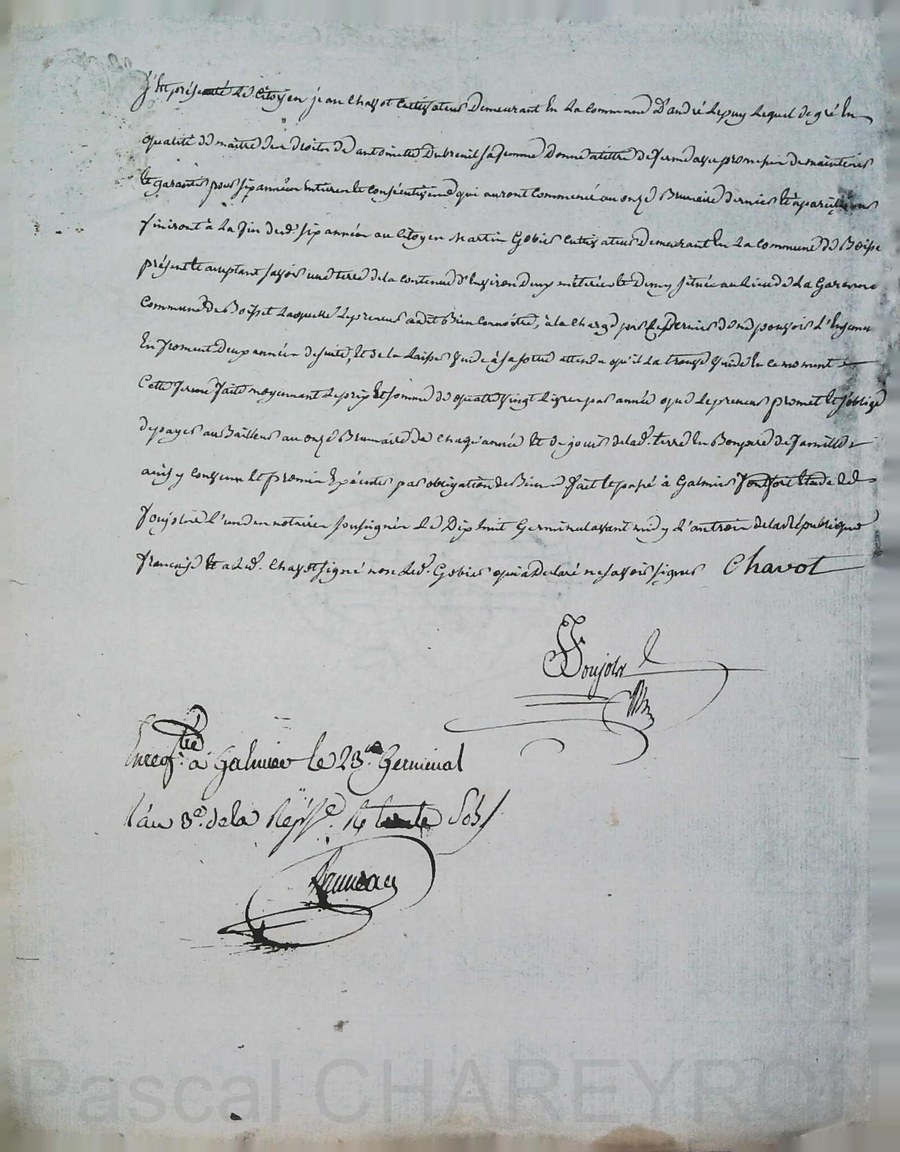 Est présenté Le Citoyen jean Chavot Cultivateur Demeurant En La Commune D'andré Lepuy Lequel de gré En
qualité de maître des droits de antoinette Dubreuil sa femme Donne atittre de ferme avec promesse de maintenir
Et garantir pour six années entières Et consécutives qui auront Commencé au onze Brumaire dernier Et à pareil
finiront à La fin desd. six années au Citoyen Martin Gobier Cultivateur demeurant En La commune de Boisset
présent Et acceptant savoir une terre de la contenue d'Environ deux métiers Et Demy située au Lieu de La Garenne
Commune de Boisset Laquelle Le preneur a dit Bien Connoître, à la Charge par Ce Dernier de ne pouvoir L'
En froment deux années de suite, Et de La Laisser vuide à sa sortie attendu qu'il La trouve vuide En ce moment
Cette ferme faite moyennant Le prix Et somme de quatre vingt Livres par année que Le preneur promet Et s'oblige
de payer au Bailleur au onze Brumaire de Chaque année Et de jouir de lad. terre En Bon père de famille
ainsy Convenu Et promis Exécuter par obligation de Biens fait Et passé à Galmier Etude de
Poujolat L'un des notaires soussignés Le Dix huit Germinal avant midy L'an trois de La République
française Et a Led. Chavot signé non Led. Gobier qui a Déclaré ne savoir signer Chavot
Enregtré à Galmier le 23 Germinal
L'an 3e. de la Repque. R Sols